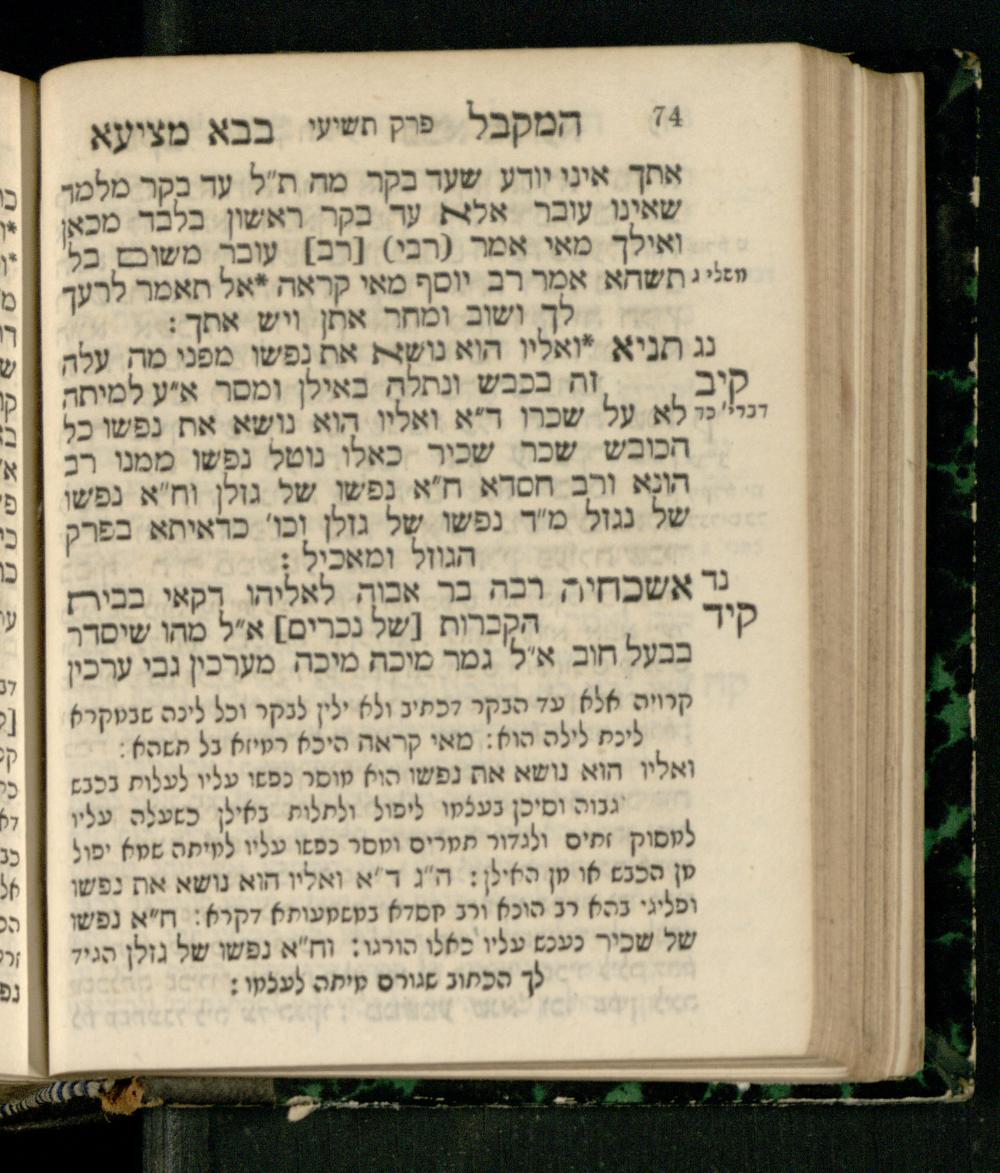 74 המקבל פרק תשיעי בבא מציעא
אתך איני יודע שעד בקר מה ת״ל עד בקר מלמד
שאינו עובר אלא עד בקר ראשון בלבד מכאן
ואילך מאי אמר (רבי) [רב] עובר משום בל
משלי ג תשהא אמר רב יוסף מאי קראה *אל תאמר לרעך
לך ושוב ומחר אתן ויש אתך :
נג תניא *ואליו הוא נושא את נפשו מפני מה עלה
קיב זה בכבש ונתלה באילן ומסר א״ע למיתה
דברי׳ כד לא על שכרו ד״א ואליו הוא נושא את נפשו כל
הכובש שכר שכיר כאלו נוטל נפשו ממנו רב
הונא ורב חסדא ח״א נפשו של גזלן וח״א נפשו
של נגזל מ״ד נפשו של גזלן וכו׳ כדאיתא בפרק
הגוזל ומאכיל :
נד אשכחיה רבה בר אבוה לאליהו דקאי בבית
קיד הקברות [של נכרים] א״ל מהו שיסדר
בבעל חוב א״ל גמר מיכת מיכה מערכין גבי ערכין
קרויה אלא עד הבקר דכתיב ולא ילין לבקר וכל לינה שבמקרא
לינת לילה הוא : מאי קראה היכא רמיזא בל תשהא :
ואליו הוא נושא את נפשו הוא מוסר נפשו עליו לעלות בכבש
גבוה וסיכן בעצמו ליפול ולתלות באילן כשעלה עליו
למסוק זתים ולגדור תמרים ומסר נפשו עליו למיתה שמא יפול
מן הכבש או מן האילן : ה״ג ד״א ואליו הוא נושא את נפשו
ופליגי בהא רב הונא ורב חסדא במשמעותא דקרא : ח״א נפשו
של שכיר נענש עליו כאלו הורגו : וח״א נפשו של גזלן הגיד
לך הכתוב שגורם מיתה לעצמו :